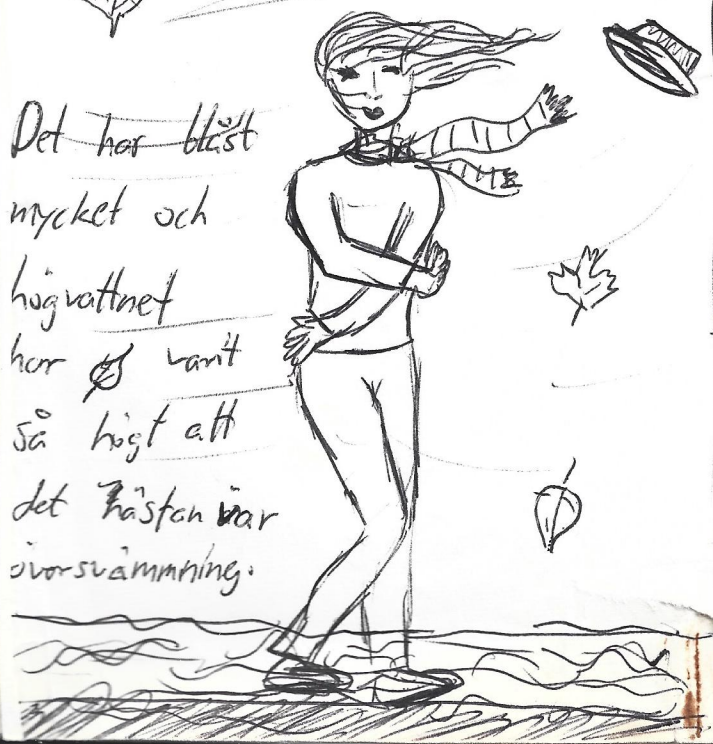 Det har blåst
mycket och
högvattnet
har varit
så högt att
det nästan var
översvämmning.